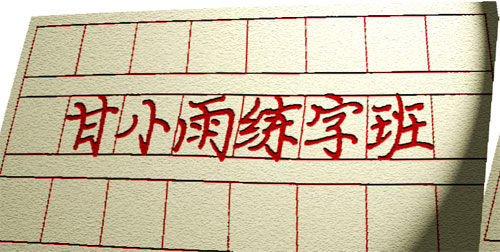 甘小雨练字班